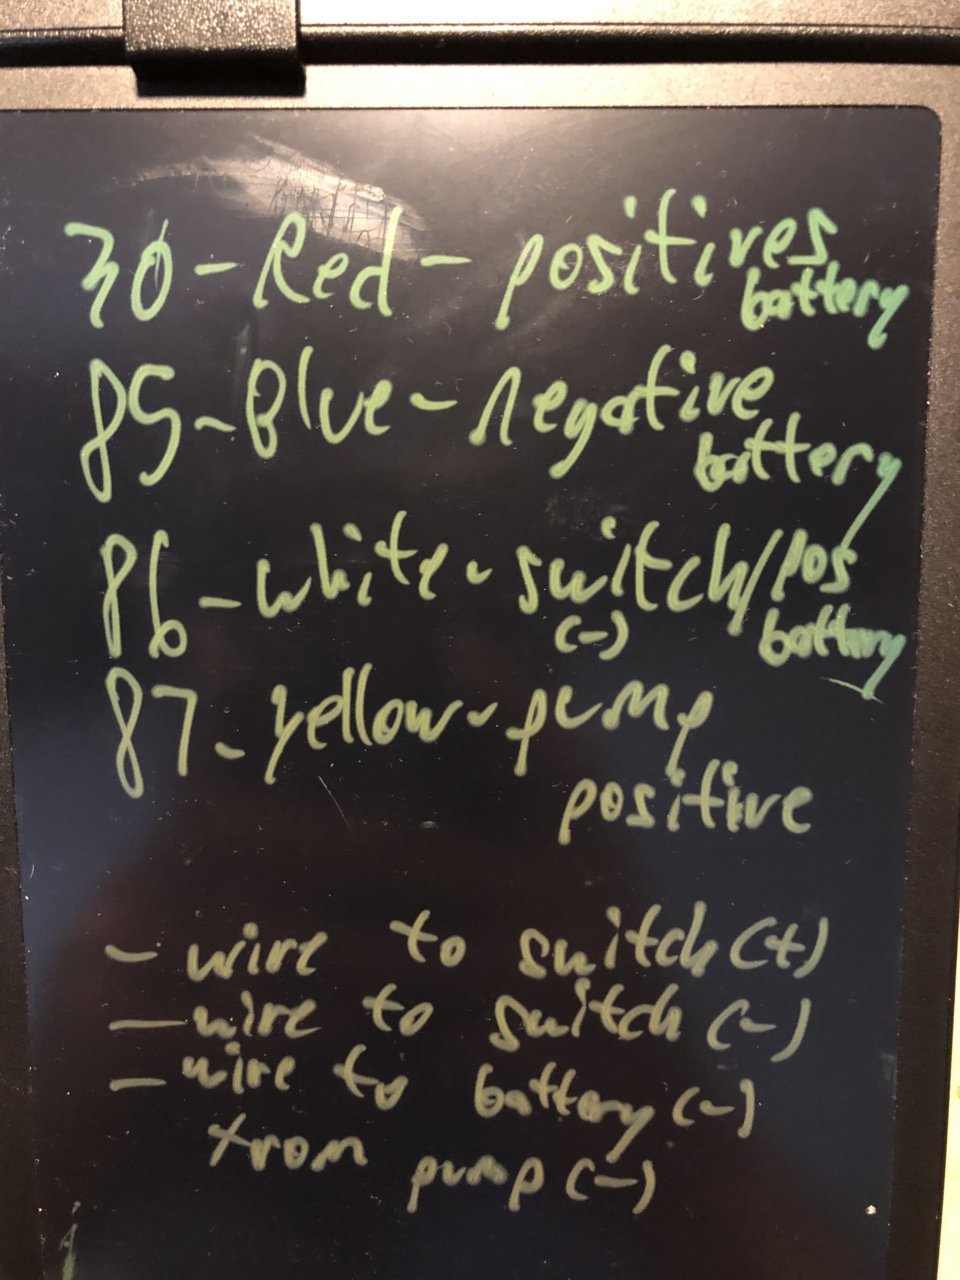 30 - Red - positives
battery
85 - Blue - negative
battery
86 - white - switch/pos
(-) battery
87 - yellow - pump
positive
- wire to switch (+)
- wire to switch (-)
- wire to battery (-)
from pump (-)